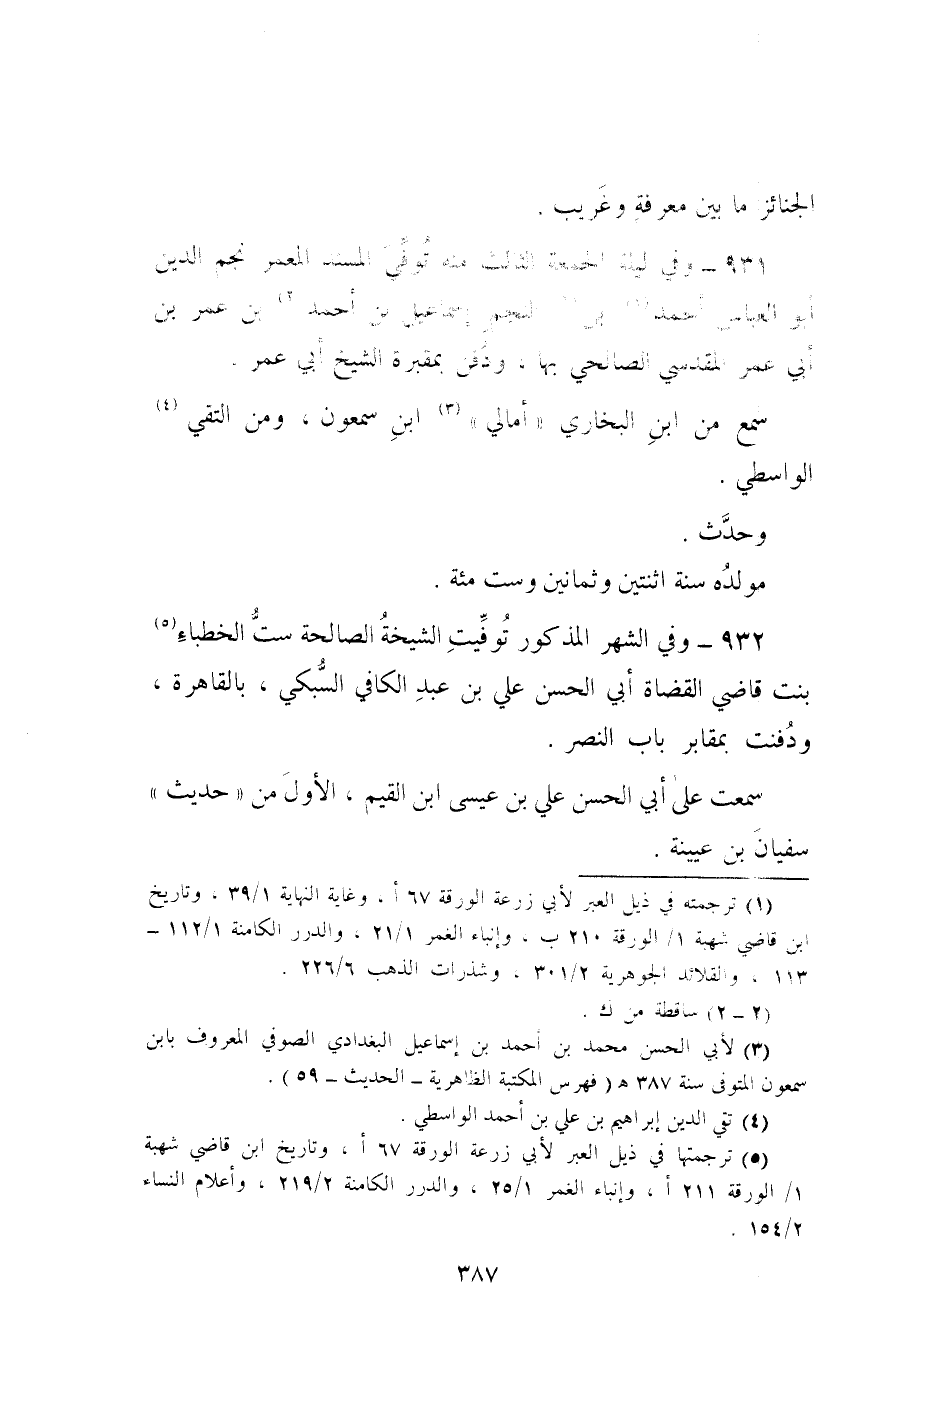 الجنائز ما بين معرفةِ وغَريب .
٩٣١ ــ وفي ليلة الجمعة الثالث منه تُوفِّيَ المسند المعمر نجم الدين
أبو العباس أحمد(١) بن (٢ النجم إسماعيل بن أحمد ٢) بن عمر بن
أبي عمر المقدسي الصالحي بها ، ودُفن بمقبرة الشيخ أبي عمر .
سمع من ابنِ البخاري « أمالي » (٣) ابنِ سمعون ، ومن التقي (٤)
الواسطي .
وحدَّث .
مولدُه سنة اثنتين وثمانين وست مئة .
٩٣٢ ــ وفي الشهر المذكور تُوفِّيتِ الشيخةُ الصالحة ستُّ الخطباءِ(٥)
بنت قاضي القضاة أبي الحسن علي بن عبدِ الكافي السُّبكي ، بالقاهرة ،
ودُفنت بمقابر باب النصر .
سمعت على أبي الحسن علي بن عيسى ابن القيم ، الأولَ من « حديث »
سفيانَ بن عيينة .
(١) ترجمته في ذيل العبر لأبي زرعة الورقة ٦٧ أ ، وغاية النهاية ٣٩/١ ، وتاريخ
ابن قاضي شهبة ١/ الورقة ٢١٠ ب ، وإنباء الغمر ٢١/١ ، والدرر الكامنة ١١٢/١ ــ
١١٣ ، والقلائد الجوهرية ٣٠١/٢ ، وشذرات الذهب ٢٢٦/٦ .
(٢ ــ ٢) ساقطة من ك .
(٣) لأبي الحسن محمد بن أحمد بن إسماعيل البغدادي الصوفي المعروف بابن
سمعون المتوفى سنة ٣٨٧ هـ ( فهرس المكتبة الظاهرية ــ الحديث ــ ٥٩ ) .
(٤) تقي الدين إبراهيم بن علي بن أحمد الواسطي .
(٥) ترجمتها في ذيل العبر لأبي زرعة الورقة ٦٧ أ ، وتاريخ ابن قاضي شهبة
١/ الورقة ٢١١ أ ، وإنباء الغمر ٢٥/١ ، والدرر الكامنة ٢١٩/٢ ، وأعلام النساء
١٥٤/٢ .
٣٨٧